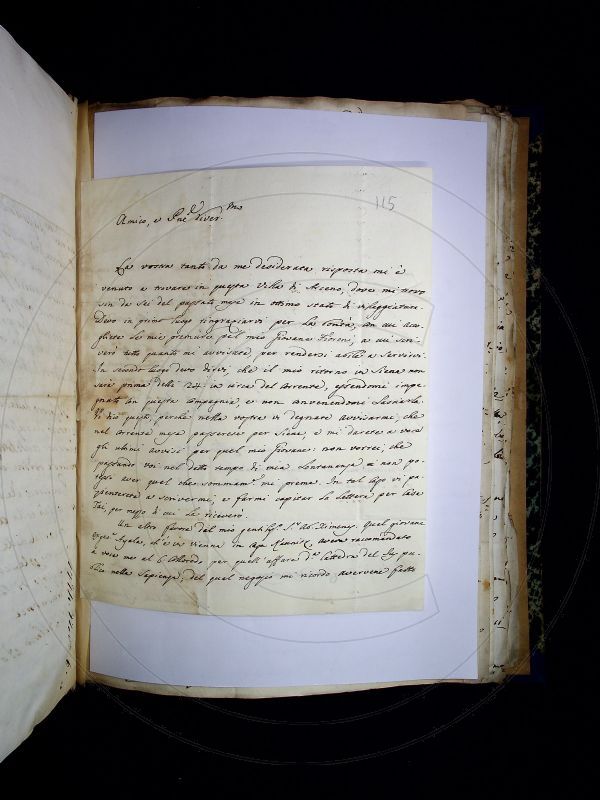 115
Amico, e Pne River.mo
La vostra tanto da me desiderata risposta mi è
venuto a trovare in questa villa di Asceno, dove mi trovo
sin da sei del passato mese in ottimo stato di villeggiatura.
Devo in primo luogo ringraziarvi per la bontà, con cui acco-
gliete le mie premure pel mio Giovane Fioreni, a cui scri-
verò tutto quanto mi avvisate, per rendersi abile a servirvi.
In secondo luogo devo dirvi, che il mio ritorno in Siena non
sarà prima delli 24: in circa del corrente, essendomi impe-
gnato con questa compagnia, e non convenendomi lasciarla.
Vi dico questo, perchè nella vostra vi degnate avvisarmi, che
nel corrente mese passerete per Siena, e mi darete a voce
gli ultimi avvisi per quel mio Giovane: non vorrei, che
passando voi nel detto tempo di mia lontananza, non po-
tessi aver quel che sommam.e mi preme. In tal caso vi pa-
zienterete a scrivermi, e farmi capitar la lettera per
per mezzo di cui la riceverò.
Un altro favore dal mio gentiliss.o S.r Ab. Ximenes. Quel giovane
Ayala, ch'è in Vienna in aveva raccomandato
a voce me al C. Colloredo per quell'affare d.a Cattedra del Jus pu-
blico nella Sapienza, del qual negozio mi ricordo avervene fatto